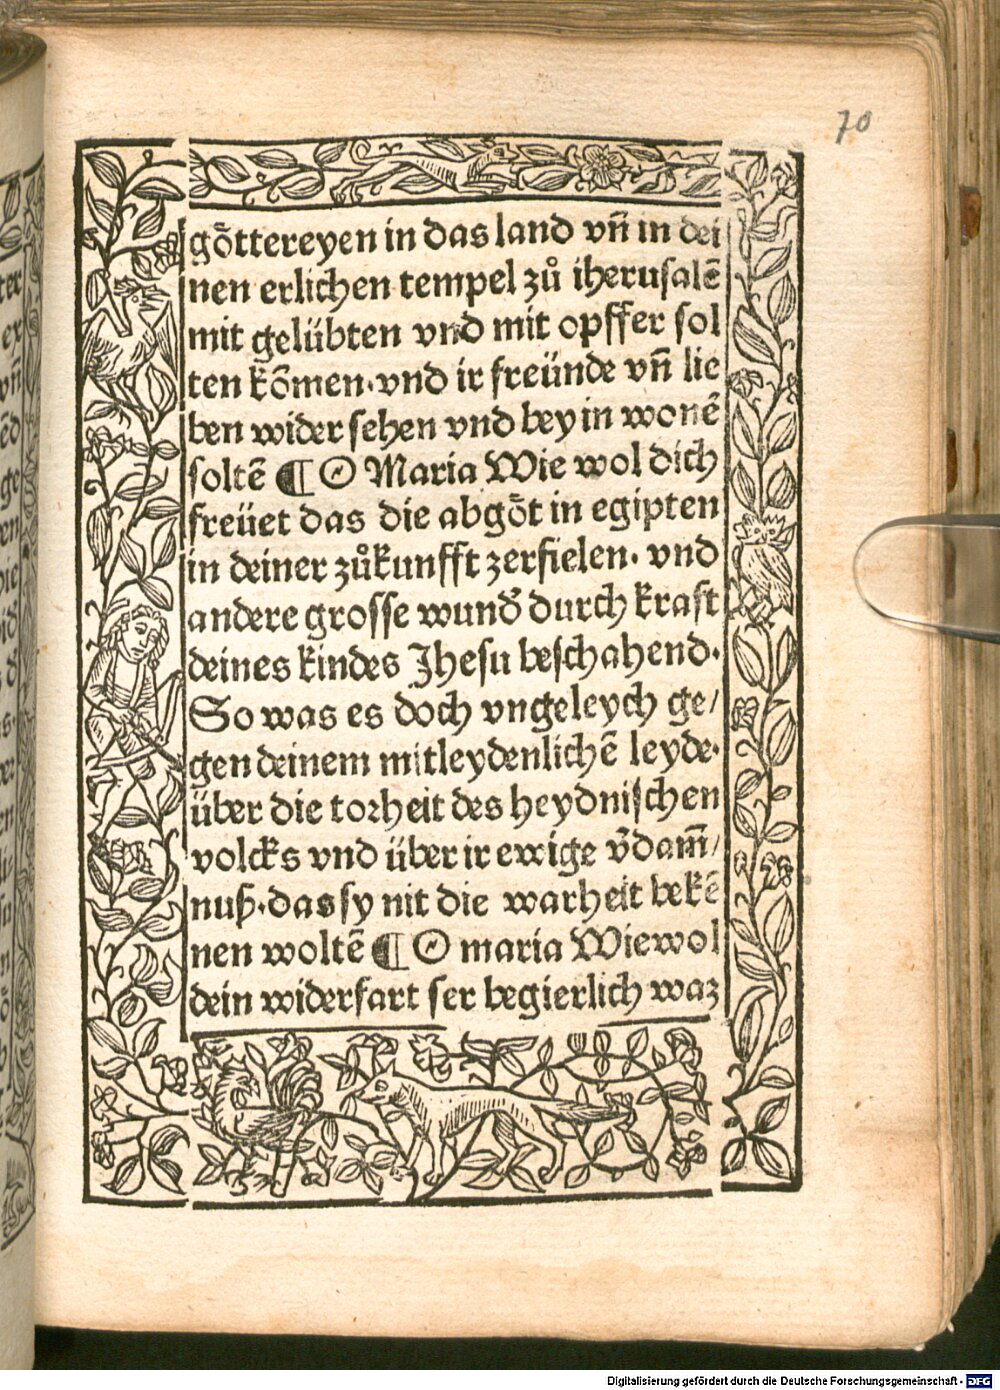 70
gõttereyen in das land vñ in dei
nen erlichen tempel zů iherusalẽ
mit gelübten vnd mit opffer sol
ten kõmen·vnd ir freünde vñ lie
ben wider sehen vnd bey in wonẽ
soltẽ ¶ O Maria Wie wol dich
freüet das die abgõt in egipten
in deiner zůkunfft zerfielen· vnd
andere grosse wund̕ durch kraft
deines kindes Jhesu beschahend·
So was es doch vngeleych ge/
gen deinem mitleydenlichẽ leyde·
über die torheit des heydnischen
volcks vnd über ir ewige v̕dam̃/
nuß·das sy nit die warheit bekẽ
nen woltẽ ¶ O maria Wiewol
dein widerfart ser begierlich waz
Digitalisierung gefördert durch die Deutsche Forschungsgemeinschaft - DFG